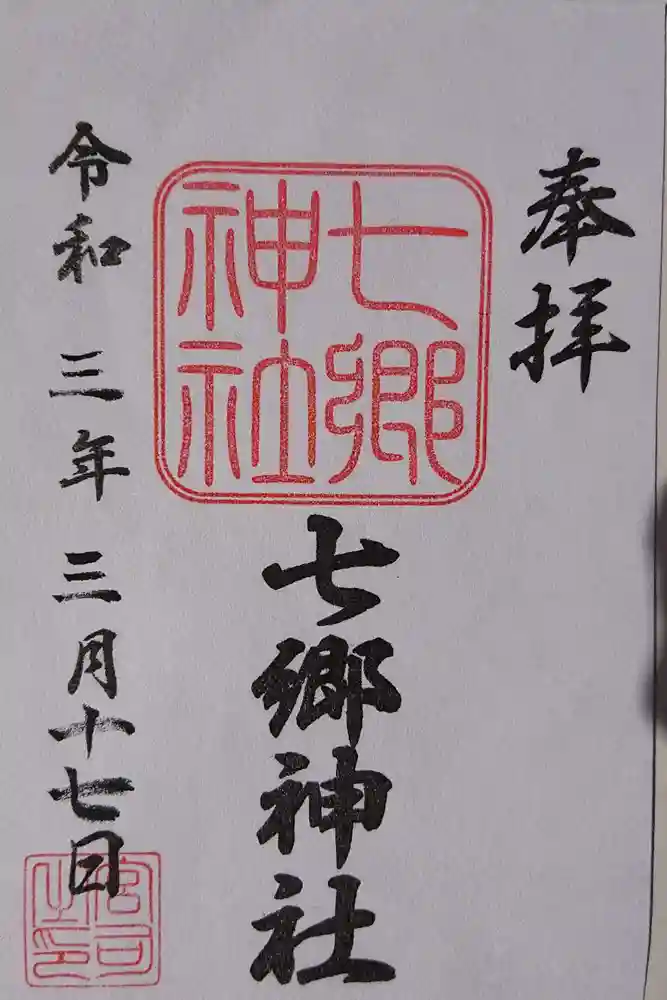 奉拝
七郷神社
七郷神社
令和三年三月十七日
宮司之印